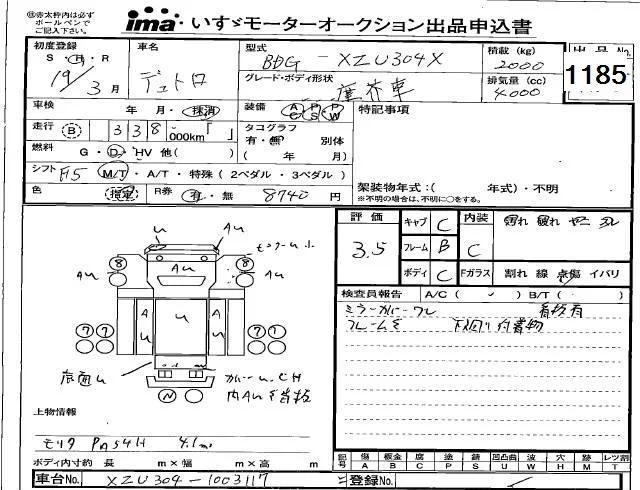 ㊟赤太枠内は必ず
ボールペンで
ご記入下さい。
ima いすゞモーターオークション出品申込書
初度登録 車名 型式 積載 (kg) 出品No.
S・H・R 19/3月 デュトロ BDG-XZU304X 2000 1185
グレード・ボディ形状 排気量 (cc)
塵芥車 4000
車検 年・月・抹消 装備 AC PS PW 特記事項
走行 B 338,000km「 」 タコグラフ
有・無 別体
燃料 G・D・HV 他( ) ( 年 月)
シフト F5 M/T・A/T・特殊(2ペダル・3ペダル) 架装物年式:( 年式)・不明
※不明の場合は、不明に○をする。
色 指定 R券 有・無 8740円
評価 キャブ C 内装 割れ 破れ ヤニ コレ
3.5 フレーム B C
ボディ C Fガラス 割れ 線 点傷 イバリ
検査員報告 A/C( ) B/T( )
ミラーカバーワレ 看板有
フレームサ 下回り付着物
u Au
8 Au Au 8 Au
Au Au
7 7 7 7
底面u
内Au多 看板
N
上物情報
モリタ PA54H 4.1m³
ボディ内寸約 長 m×幅 m×高 m
記号 傷 板金 腐 塗 錆 凹凸曲 波 穴 跡 レツ割
A B C P S U W H M T
車台No. XZU304-1003117 登録No.